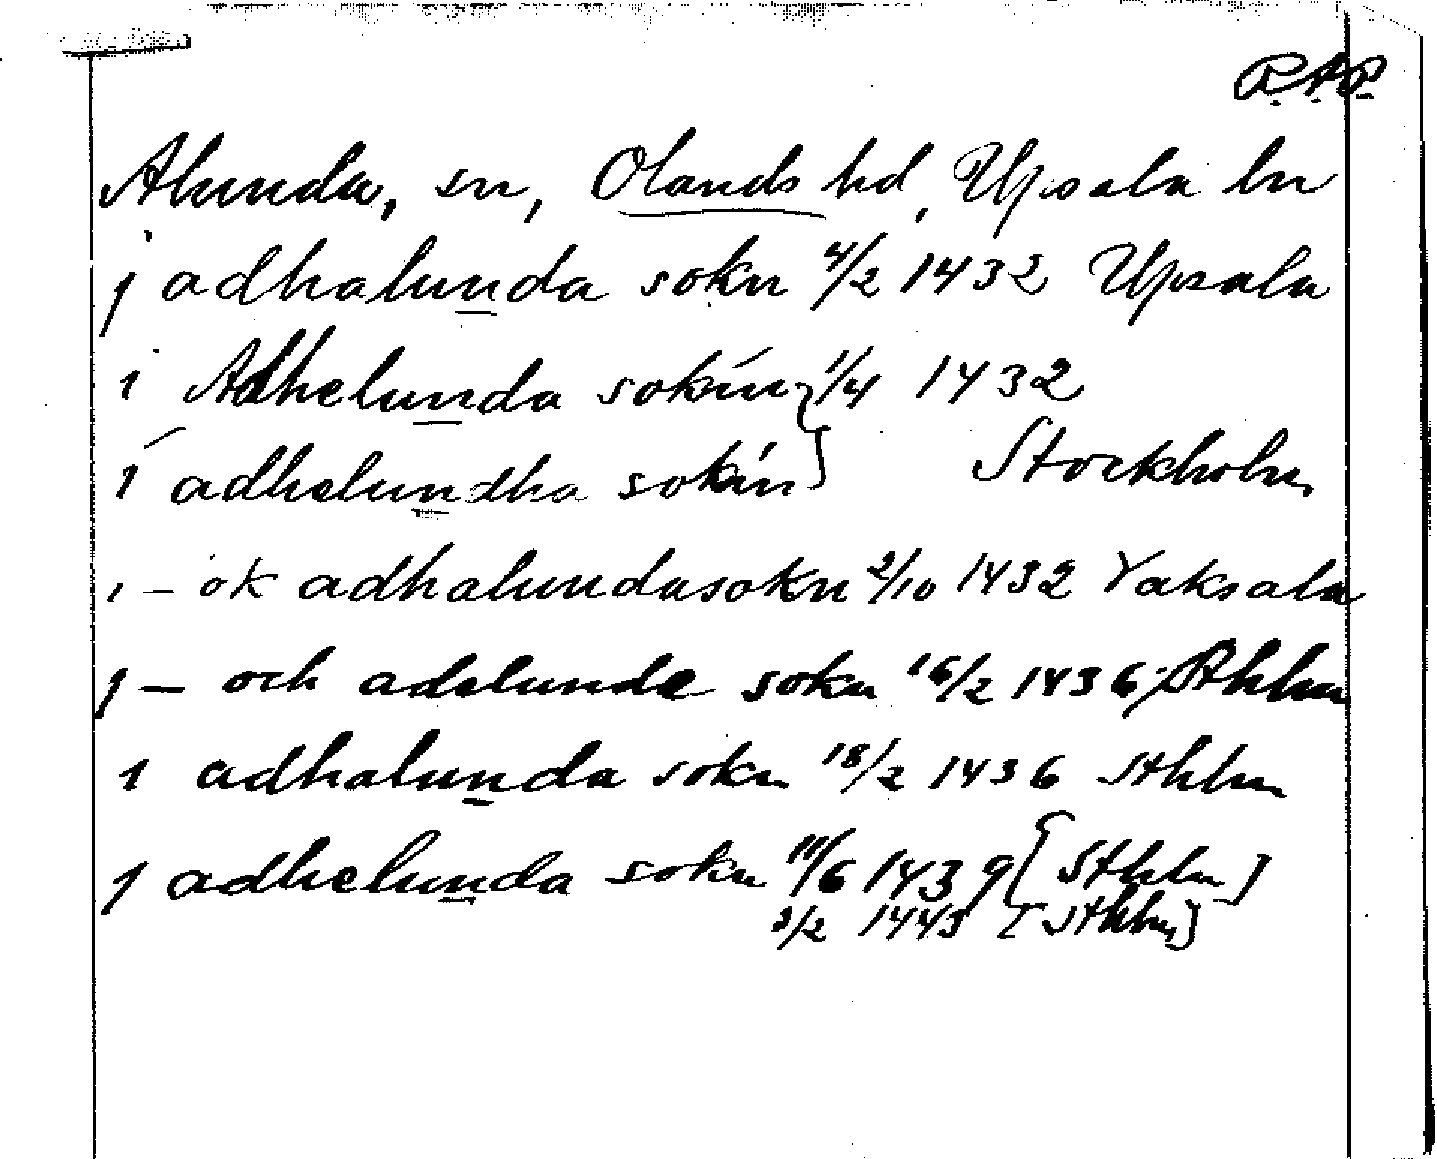 R.A.P.
Alunda, sn, Olands hd, Upsala ln
j adhalunda sokn 4/2 1432 Upsala
i Adhelunda sokín } 1/4 1432
í adhelundha sokín } Stockholm
i – ok adhalundasokn 2/10 1432 Vaksala
j – och adelunde sokn 16/2 1436 Sthlm
i adhalunda sokn 18/2 1436 Sthlm
j adhelunda sokn 11/6 1439 [Sthlm]
3/2 1443 [Sthlm]